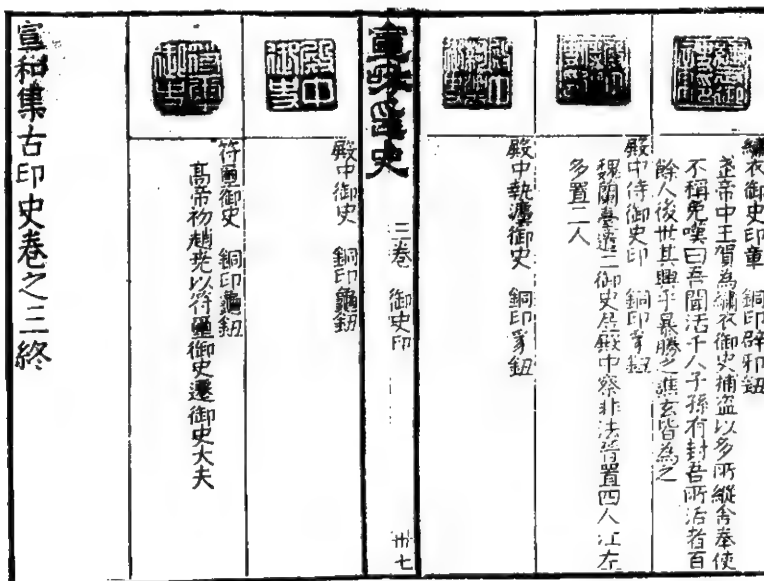 繡衣御史印章　銅印辟邪鈕
武帝中王賀為繡衣御史捕盗以多所縱舍奉使
不稱免嘆曰吾聞活千人子孫有封吾所活者百
餘人後世其興乎暴勝之譙玄皆為之
殿中侍御史印　銅印豸鈕
魏蘭臺遣二御史居殿中察非法晉置四人江左
多置二人
殿中執灋御史　銅印豸鈕
宣和印史
三卷　御史印
卅七
殿中御史
殿中御史　銅印龜鈕
符璽御史
符璽御史　銅印龜鈕
高帝初趙堯以符璽御史遷御史大夫
宣和集古印史卷之三終